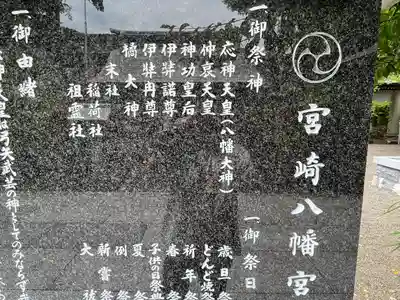 宮崎八幡宮
一 御祭神
応神天皇(八幡大神)
仲哀天皇
神功皇后
伊弉諾尊
伊弉冉尊
橘大神
末社
稲荷社
祖霊社
一 御祭日
歳旦祭
どんど焼祭
祈年祭
春祭
子供の日祭典
夏祭
例祭
新嘗祭
大祓
一 御由緒